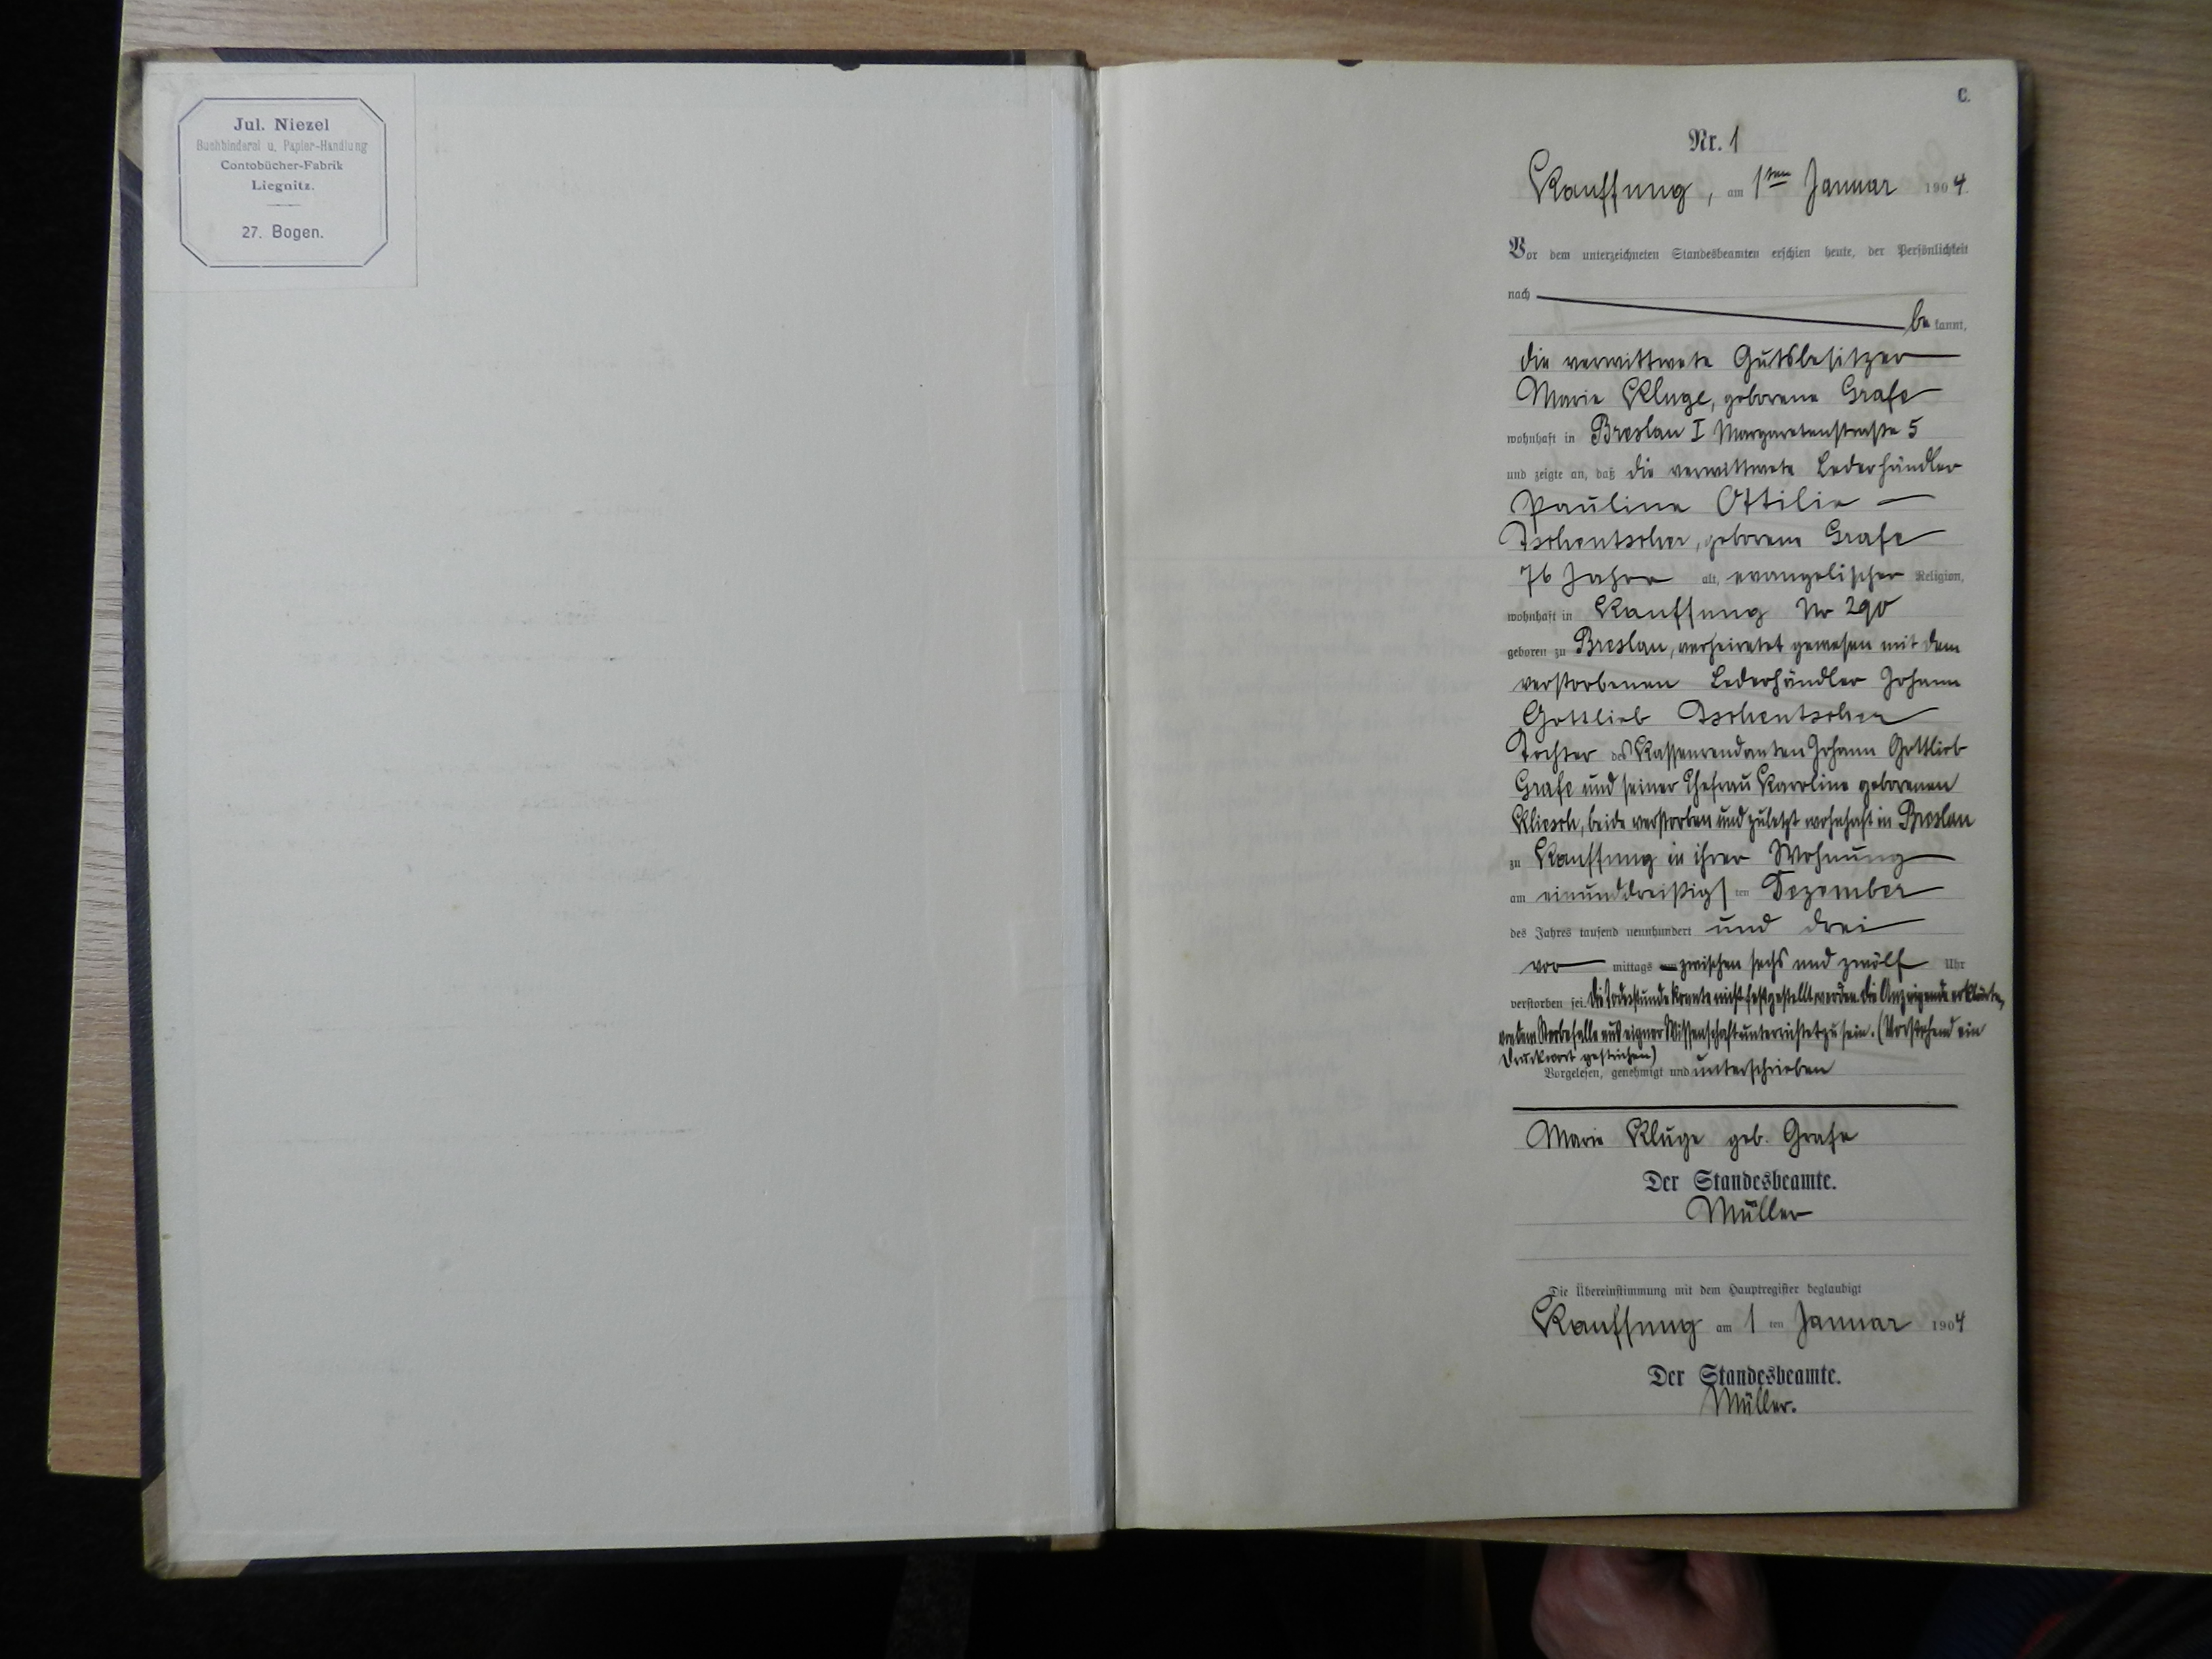 Jul. Niezel
Buchbinderei u. Papier-Handlung
Contobücher-Fabrik
Liegnitz.
27. Bogen.
C.
Nr. 1
Kauffung, am 1ten Januar 1904.
Vor dem unterzeichneten Standesbeamten erschien heute, der Persönlichkeit
nach
be kannt,
die verwittwete Gutsbesitzer
Marie Kluge, geborene Grafe
wohnhaft in Breslau I Margaretenstraße 5
und zeigte an, daß die verwittwete Lederhändler
Pauline Ottilie
Tschentscher, geborene Grafe
76 Jahre alt, evangelischer Religion,
wohnhaft in Kauffung Nr 290
geboren zu Breslau, verheiratet gewesen mit dem
verstorbenen Lederhändler Johann
Gottlieb Tschentscher
Tochter des Kassenrendanten Johann Gottlieb
Grafe und seiner Ehefrau Karoline geborenen
Kliesch, beide verstorben und zuletzt wohnhaft in Breslau
zu Kauffung in ihrer Wohnung
am einunddreißigsten Dezember
des Jahres tausend neunhundert und drei
vor mittags zwischen sechs und zwölf Uhr
verstorben sei. Die Todesstunde konnte nicht festgestellt werden. Die Anzeigende erklärte,
von dem Sterbefalle aus eigner Wissenschaft unterrichtet zu sein. (Vorstehend ein
Druckwort gestrichen)
Vorgelesen, genehmigt und unterschrieben
Marie Kluge geb. Grafe
Der Standesbeamte.
Müller
Die Übereinstimmung mit dem Hauptregister beglaubigt
Kauffung am 1 ten Januar 1904
Der Standesbeamte.
Müller.